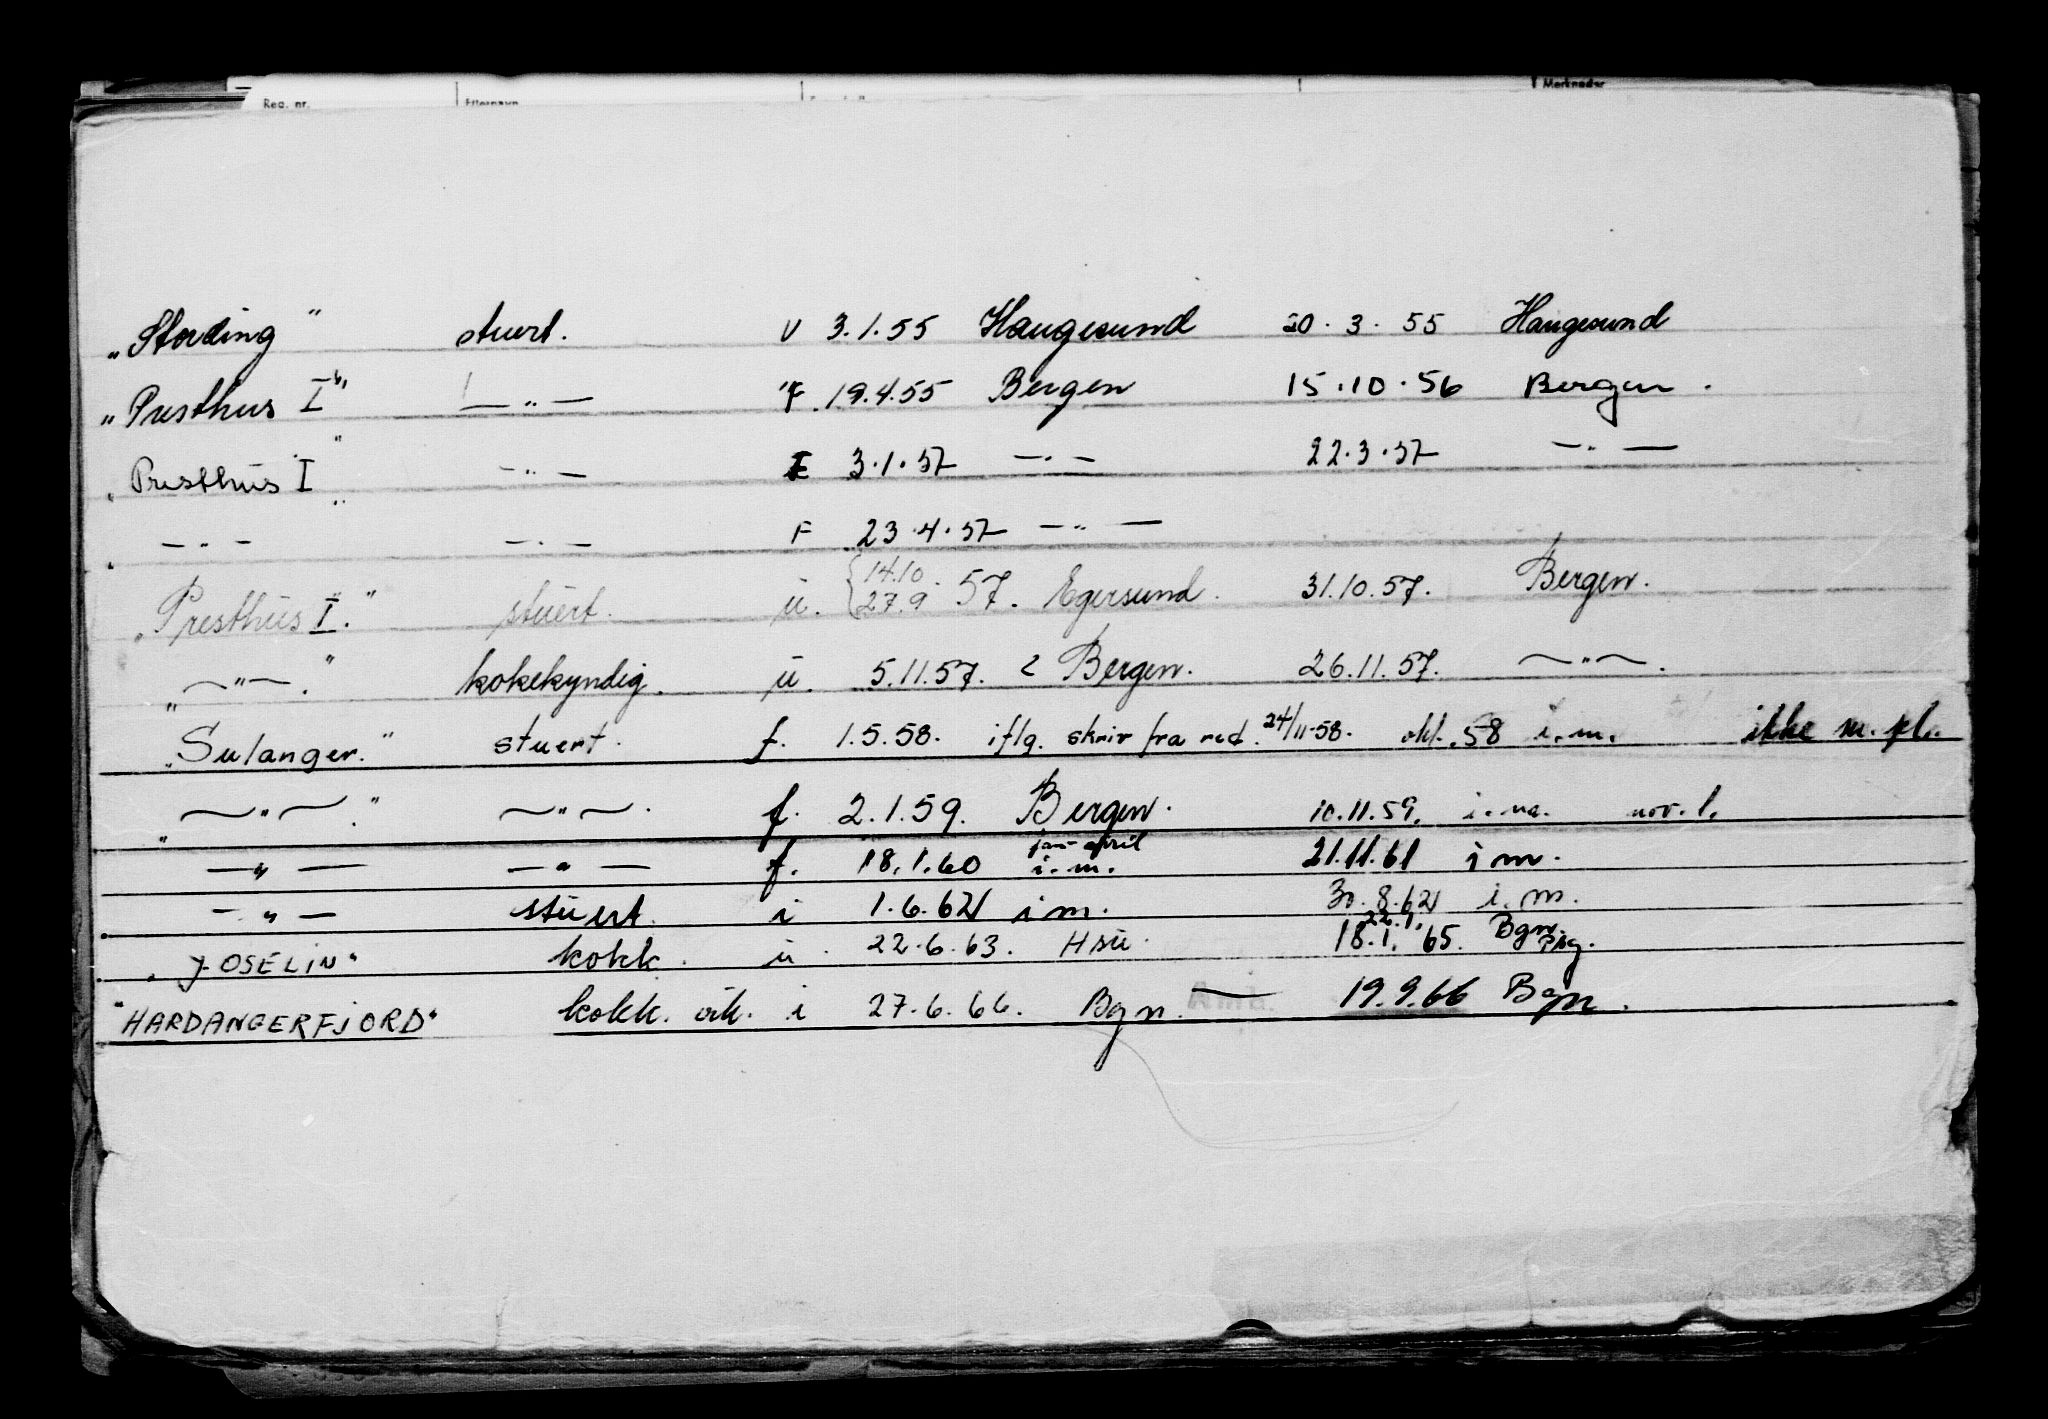 Reg. nr. Etternavn Merknader
„Stording" stuert. U 3.1.55 Haugesund 20.3.55 Haugesund
„Presthus I" — " — F. 19.4.55 Bergen 15.10.56 Bergen.
„Presthus I" — " — E 3.1.57 — " — 22.3.57 — " —
„ — " — " — " — F 23.4.57 — " —
„Presthus I." stuert. u. { 14.10 27.9 . 57. Egersund. 31.10.57. Bergen.
„ — " — ." kokekyndig. u. 5.11.57. Bergen. 26.11.57. — " — .
„Sulanger." stuert. f. 1.5.58. iflg. skriv fra red. 24/11-58. okt. 58 i.m. ikke m. pl.
„ — " — ." — " — . f. 2.1.59. Bergen. 10.11.59. i.m. nov. l.
— " — — " — f. 18.1.60 jan-april i.m. 21.11.61 i m.
— " — stuert. i 1.6.62 i m. 30.8.62 i. m.
„JOSELIN" kokk. u. 22.6.63. Hsu. 18.1. 22.1. 65. Bgn. Påg.
"HARDANGERFJORD" kokk. i 27.6.66. Bgn. Amb. — 19.9.66 Bgn.